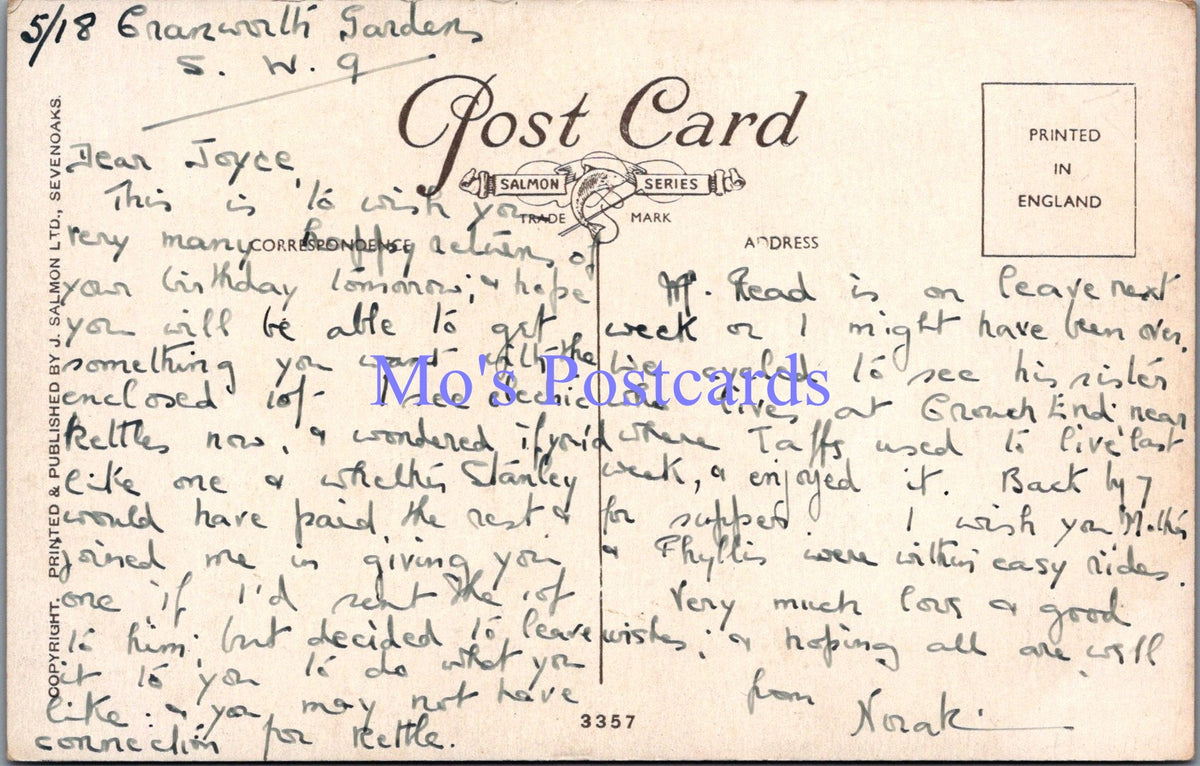 5/18 Cranworth Gardens
S. W. 9
Post Card
SALMON SERIES
TRADE MARK
CORRESPONDENCE
ADDRESS
PRINTED
IN
ENGLAND
COPYRIGHT. PRINTED & PUBLISHED BY J. SALMON LTD., SEVENOAKS.
Dear Joyce,
This is to wish you
very many happy returns of
your birthday tomorrow; & hope
you will be able to get
something you want with the
enclosed 10/- I see electric
kettles now, & wondered if you'd
like one & whether Stanley
would have paid the rest &
joined me in giving you
one if I'd sent the 10/-
to him; but decided to leave
it to you to do what you
like: & you may not have
connection for kettle.
Mr. Read is on leave next
week or I might have been over.
cycled to see his sister
who lives at Crouch End near
where Taffs used to live last
week, & enjoyed it. Back by 7
for supper. I wish you Mother
& Phyllis were within easy rides.
Very much love & good
wishes; & hoping all are well
from
Norah.
3357
Mo's Postcards